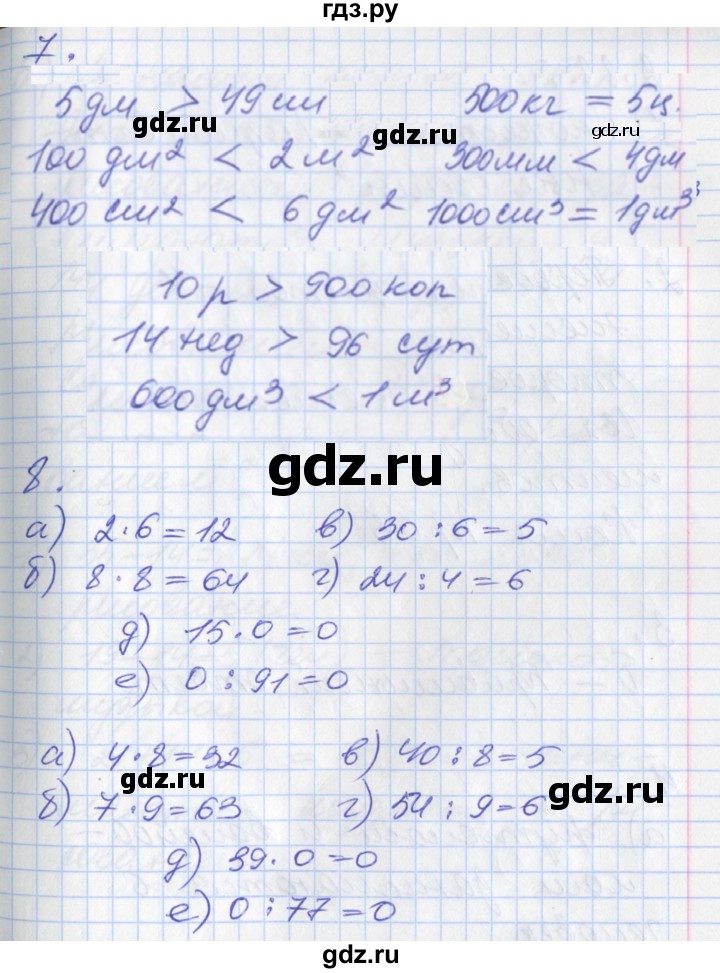 гдз.ру
7.
5 дм > 49 см 500 кг = 5 ц.
gdz.ru gdz.ru
100 дм² < 2 м² 300 мм < 4 дм
400 см² < 6 дм² 1000 см³ = 1 дм³
10 р > 900 коп
14 нед > 96 сут
600 дм³ < 1 м³
gdz.ru
8.
а) 2 · 6 = 12 в) 30 : 6 = 5
б) 8 · 8 = 64 г) 24 : 4 = 6
д) 15 · 0 = 0
е) 0 : 91 = 0
а) 4 · 8 = 32 в) 40 : 8 = 5
gdz.ru gdz.ru
б) 7 · 9 = 63 г) 54 : 9 = 6
д) 39 · 0 = 0
е) 0 : 77 = 0
gdz.ru